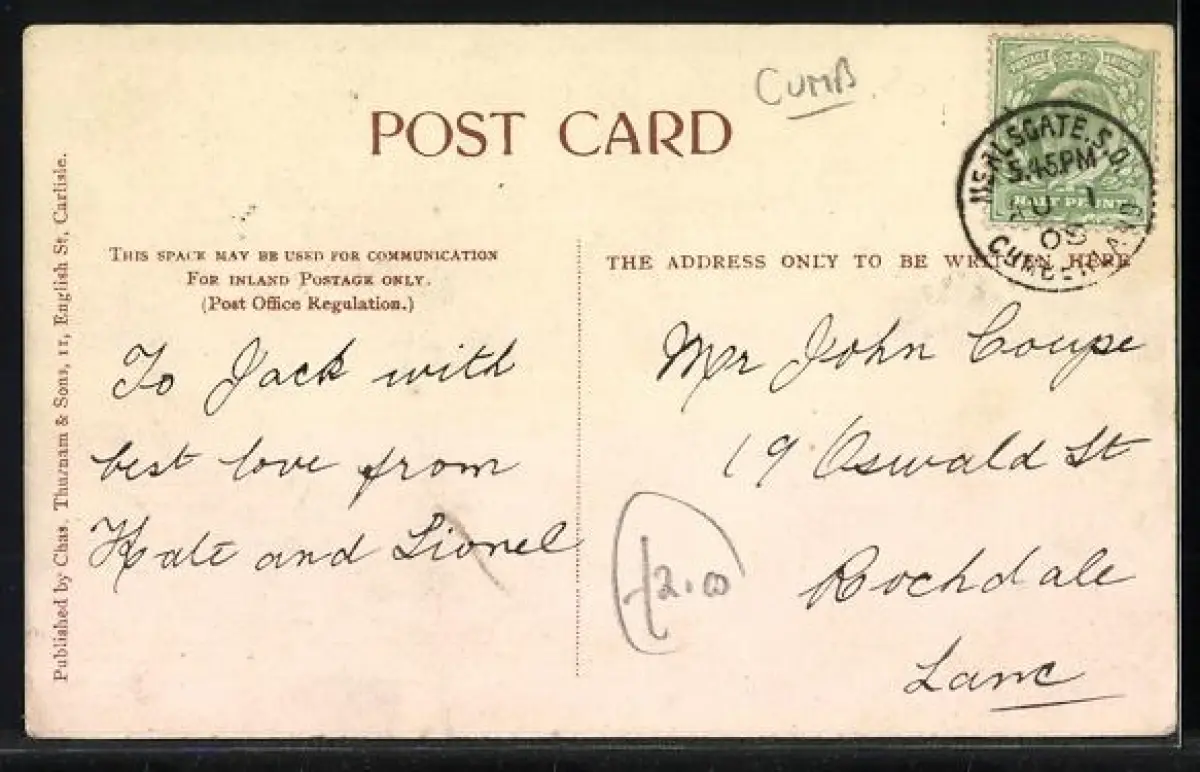 CUMB
POST CARD
MEALSGATE.S.O.
5.45PM
AU 1
CUMBERLAND
HALF PENNY
Published by Chas. Thurnam & Sons, 11, English St, Carlisle.
THIS SPACE MAY BE USED FOR COMMUNICATION
FOR INLAND POSTAGE ONLY.
(Post Office Regulation.)
THE ADDRESS ONLY TO BE WRITTEN HERE
To Jack with
best love from
Kate and Lionel
Mr John Coupe
19 Oswald St
Rochdale
Lanc